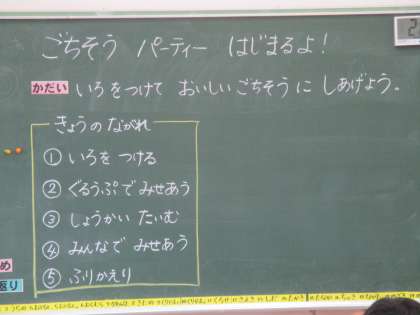 ごちそう パーティー はじまるよ!
かだい いろをつけて おいしいごちそうに しあげよう。
きょうのながれ
① いろをつける
② ぐるうぷで みせあう
③ しょうかい たいむ
④ みんなで みせあう
⑤ ふりかえり
め
返り
2